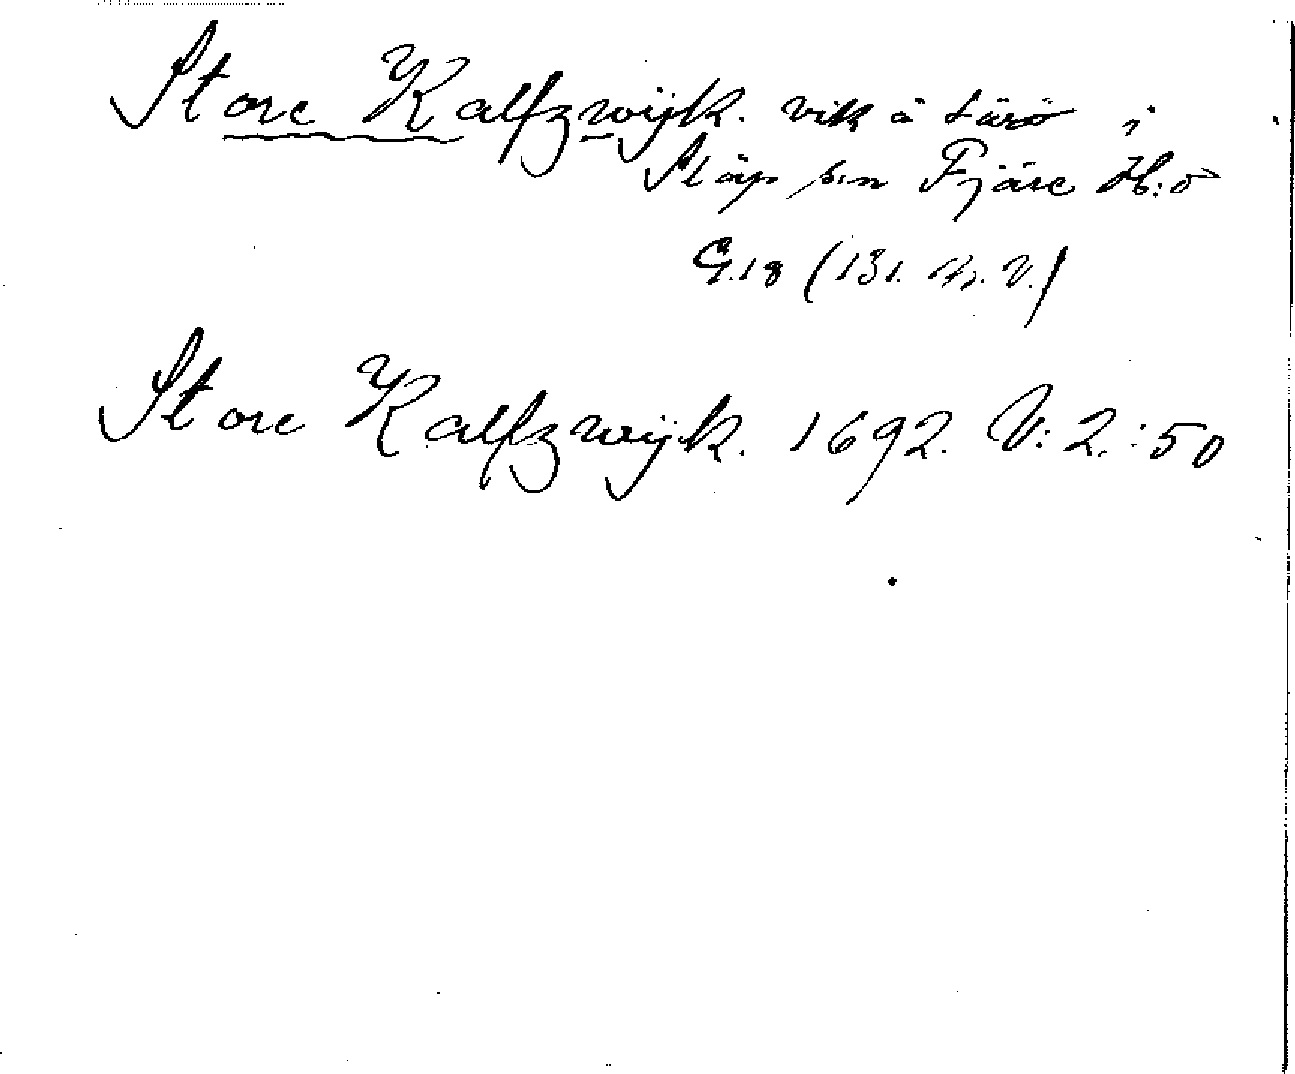 Store Kalfzwijk. vik å Särö i
Släp s:n Fjäre H:d
G.18 (131. N. V.)
Store Kalfzwijk. 1692. V: 2.:50